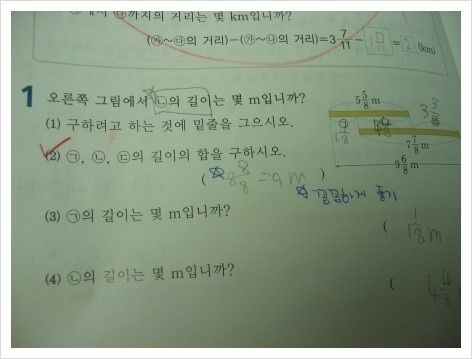 까지의 거리는 몇 km입니까?
(㉮~㉯의 거리)-(㉮~㉯의 거리)=3 7/11 - = 2 (km)
1 오른쪽 그림에서 ㉡의 길이는 몇 m입니까?
5 5/8 m
(1) 구하려고 하는 것에 밑줄을 그으시오.
㉠
7 7/8 m
(2) ㉠, ㉡, ㉢의 길이의 합을 구하시오.
9 6/8 m
( 8 8/8 = 9 m )
꼼꼼하게 풀기
(3) ㉠의 길이는 몇 m입니까?
( 1 1/8 m
(4) ㉡의 길이는 몇 m입니까?
( 4 4/8